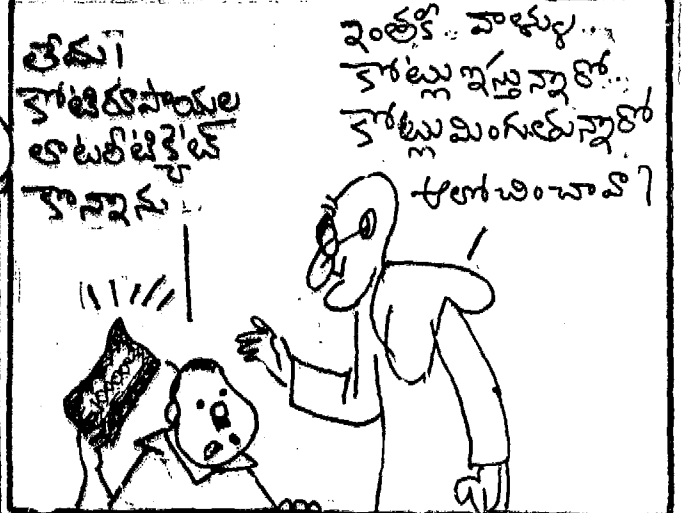 లేదు!
కోటిరూపాయల
లాటరీటిక్కెట్
కొన్నాను...
ఇంతకీ.. వాళ్ళు...
కోట్లు ఇస్తున్నారో...
కోట్లు మింగుతున్నారో
ఆలోచించావా?